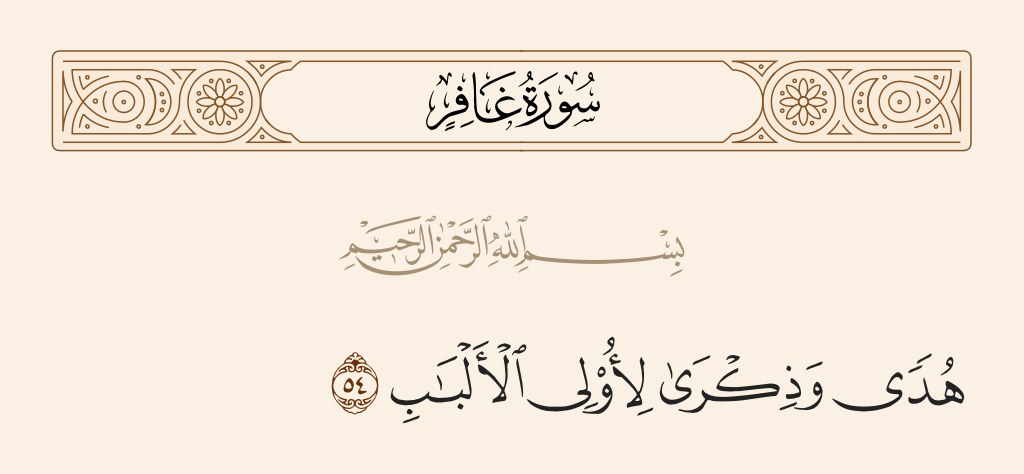 سُورَةُ غَافِرٍ
بِسْمِ ٱللَّهِ ٱلرَّحْمَٰنِ ٱلرَّحِيمِ
هُدًى وَذِكْرَىٰ لِأُو۟لِى ٱلْأَلْبَـٰبِ ٥٤